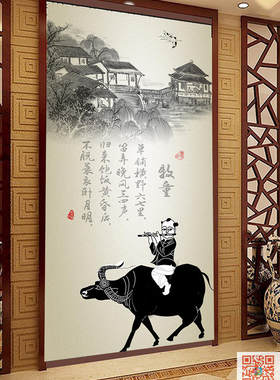 牧童
草铺横野六七里，
笛弄晚风三四声，
归来饱饭黄昏后，
不脱蓑衣卧月明。